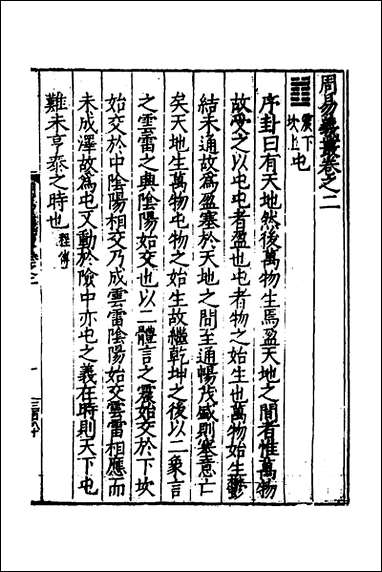 周易義叢卷之二
震下
坎上 屯
序卦曰有天地然後萬物生焉盈天地之間者惟萬物
故受之以屯屯者盈也屯者物之始生也萬物始生鬱
結未通故為盈塞於天地之間至通暢茂盛則塞意亡
矣天地生萬物屯物之始生故繼乾坤之後以二象言
之雲雷之興陰陽始交也以二體言之震始交於下坎
始交於中陰陽相交乃成雲雷陰陽始交雲雷相應而
未成澤故為屯又動於險中亦屯之義在時則天下屯
難未亨泰之時也 程傳